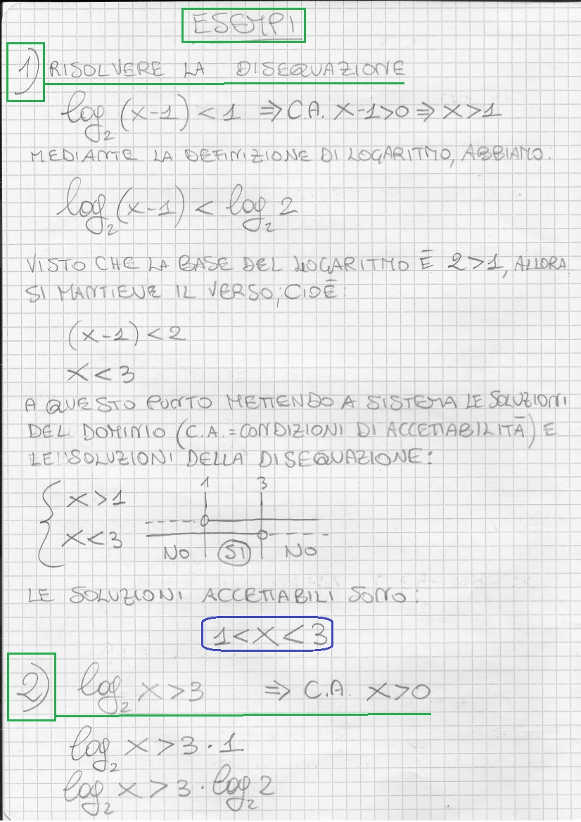 ESEMPI
1) RISOLVERE LA DISEQUAZIONE
log₂(x-1) < 1 ⇒ C.A. x-1>0 ⇒ x>1
MEDIANTE LA DEFINIZIONE DI LOGARITMO, ABBIAMO.
log₂(x-1) < log₂ 2
VISTO CHE LA BASE DEL LOGARITMO È 2>1, ALLORA
SI MANTIENE IL VERSO, CIOÈ:
(x-1) < 2
x < 3
A QUESTO PUNTO METTENDO A SISTEMA LE SOLUZIONI
DEL DOMINIO (C.A.=CONDIZIONI DI ACCETTABILITÀ) E
LE SOLUZIONI DELLA DISEQUAZIONE:
1 3
x>1
x<3
NO SI NO
LE SOLUZIONI ACCETTABILI SONO:
1<x<3
2) log₂ x > 3 ⇒ C.A. x>0
log₂ x > 3 · 1
log₂ x > 3 · log₂ 2